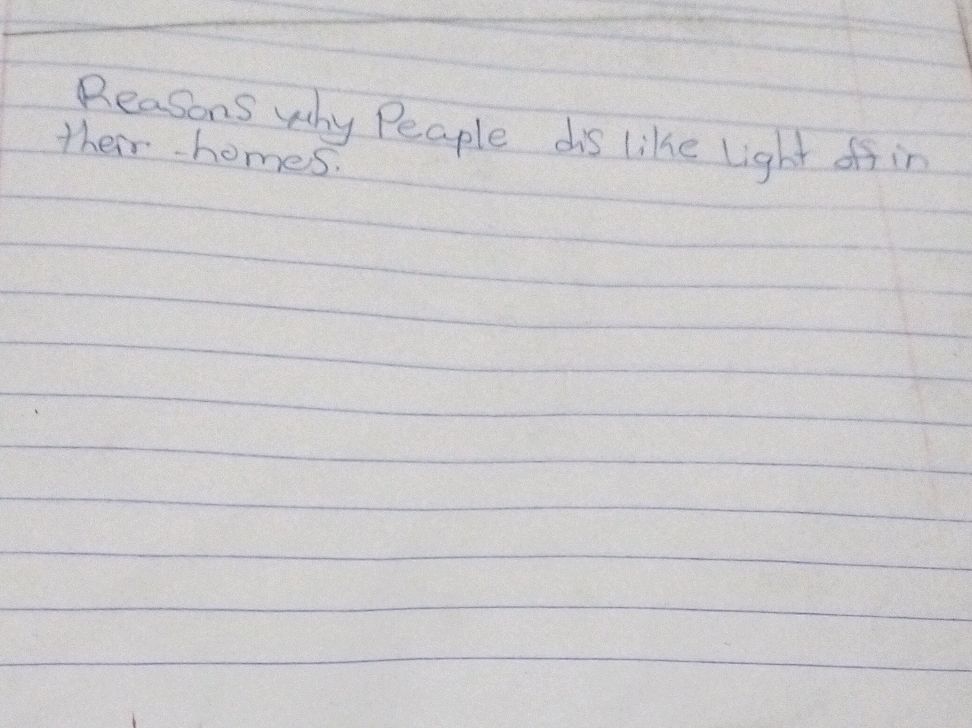 Reasons why Peaple dis like Light off in
their homes.